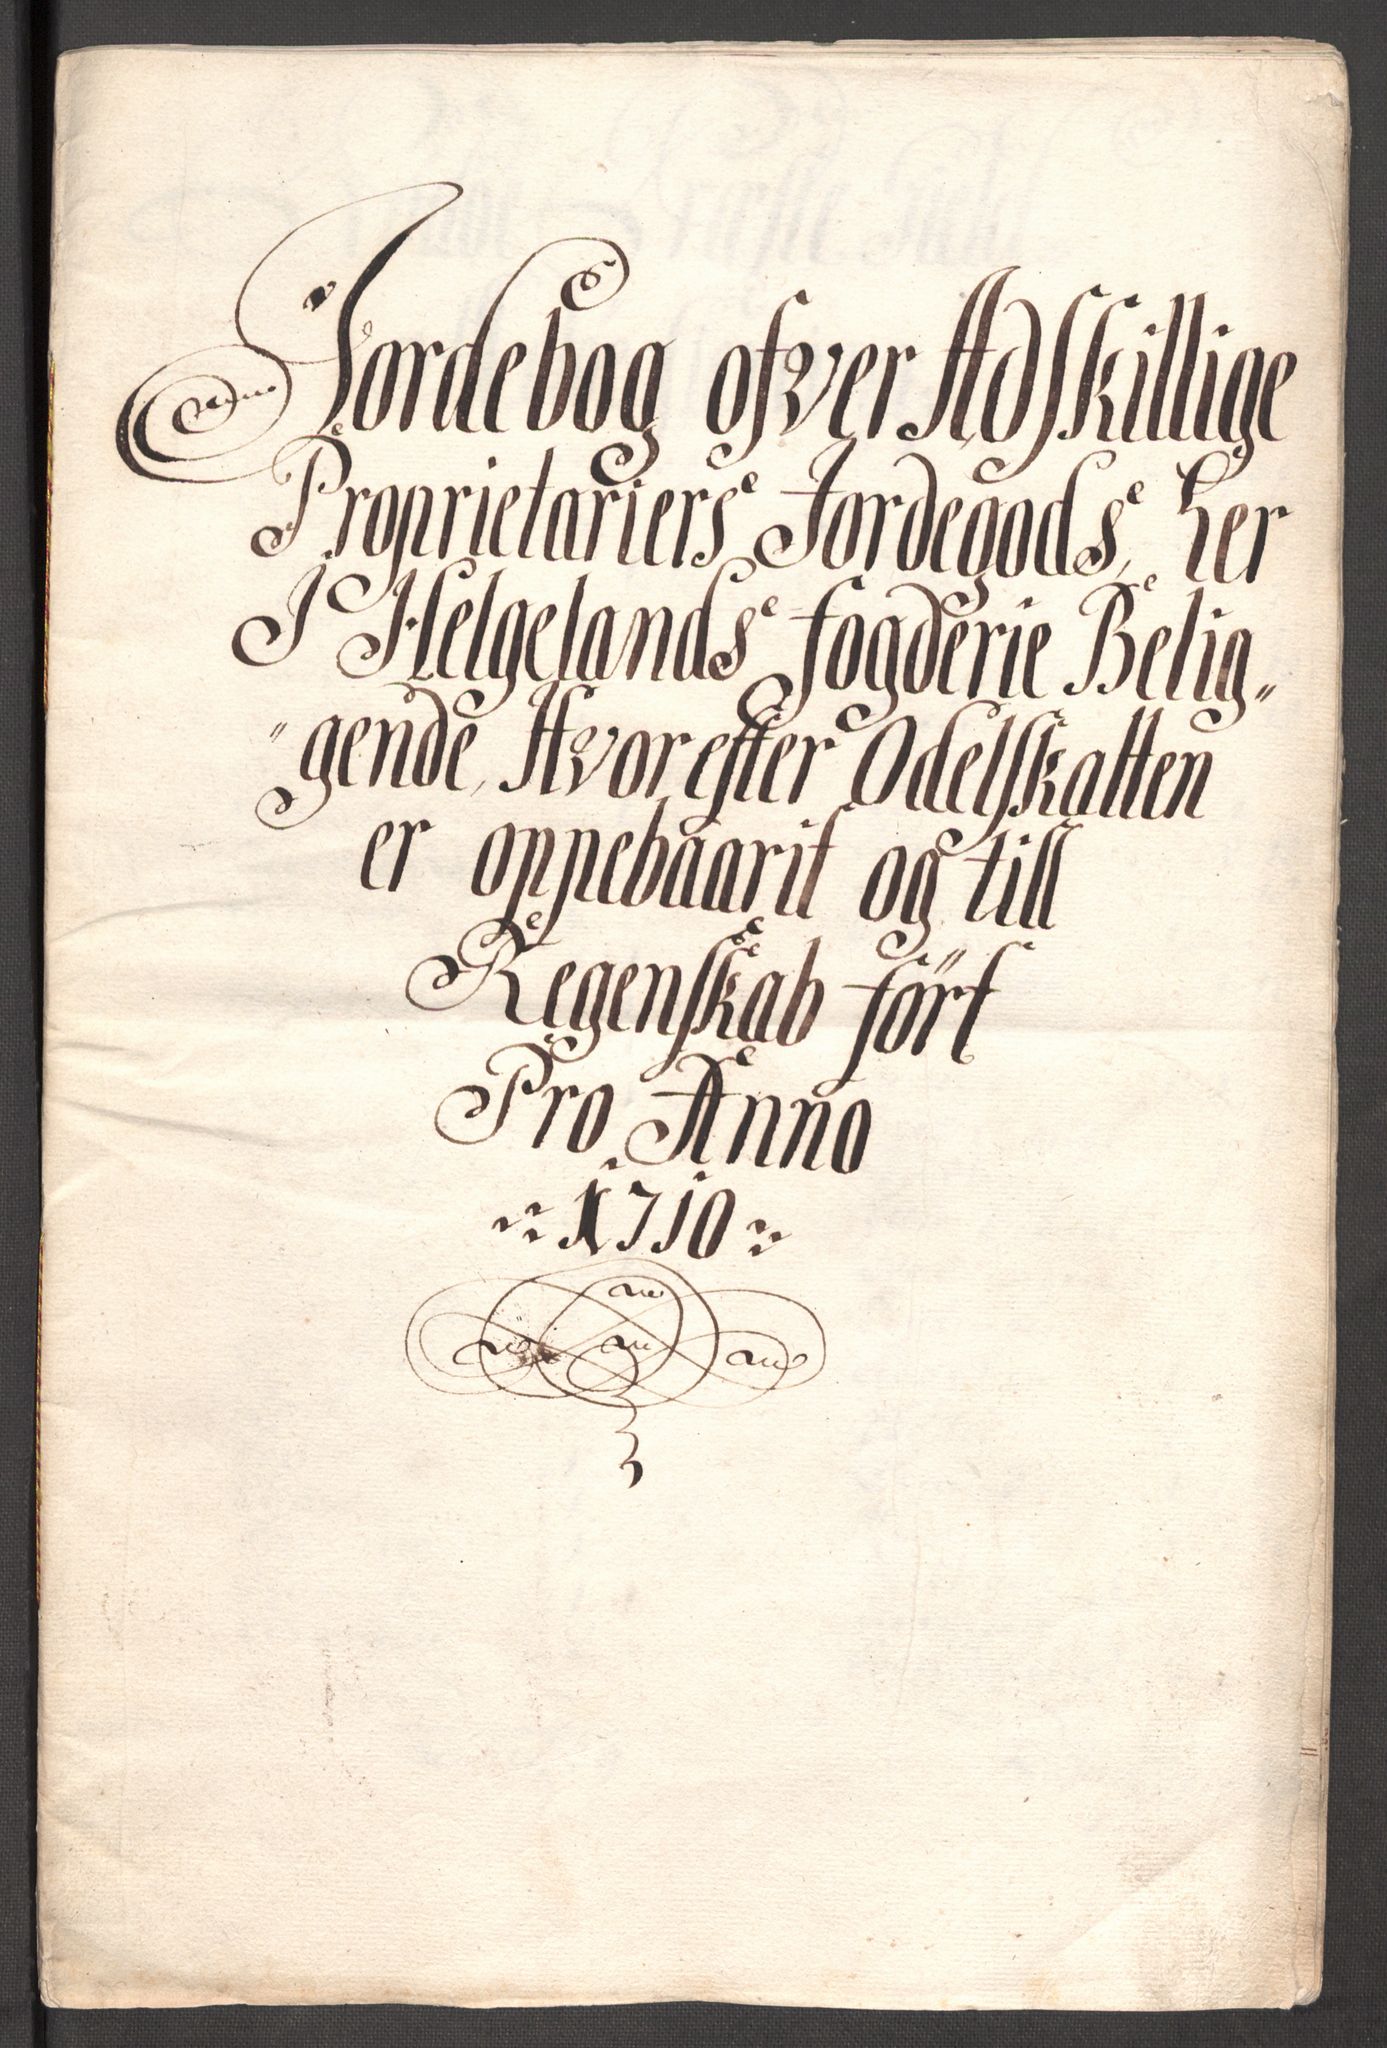 Jordebog ofver Adskillige
Proprietariers Jordegods, her
I Helgelands fogderie Belig„
„gende, Hvorefter Odelskatten
er oppebaarit og till
Regenskab fört
Pro Anno
1710